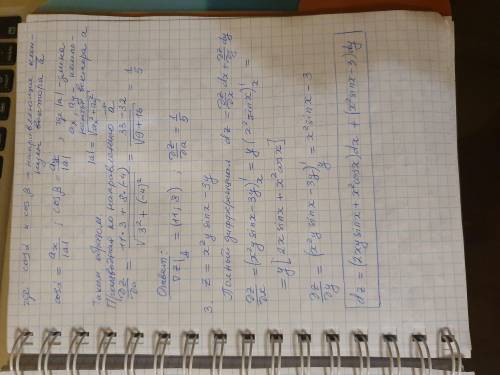 где cosα и cosβ – направляющие коси-
нусы вектора a̅
cosα = aₓ/|a| ; cosβ = a_y/|a| , где |a| – длина
aₓ, a_y – компо-
ненты вектора a
|a| = √(aₓ² + a_y²)
Таким образом
Производная по направлению a̅
∂z/∂a = (11·3 + 8·(-4))/√(3² + (-4)²) = (33-32)/√(9+16) = 1/5
Ответ:
∇z|_A = (11; 8) ; ∂z/∂a = 1/5
3. z = x²y sinx - 3y
Полный дифференциал dz = ∂z/∂x dx + ∂z/∂y dy
∂z/∂x = (x²y sinx - 3y)'ₓ = y(x² sinx)'ₓ =
= y[2x sinx + x² cosx]
∂z/∂y = (x²y sinx - 3y)'_y = x² sinx - 3
dz = (2xy sinx + x² cosx)dx + (x² sinx - 3)dy